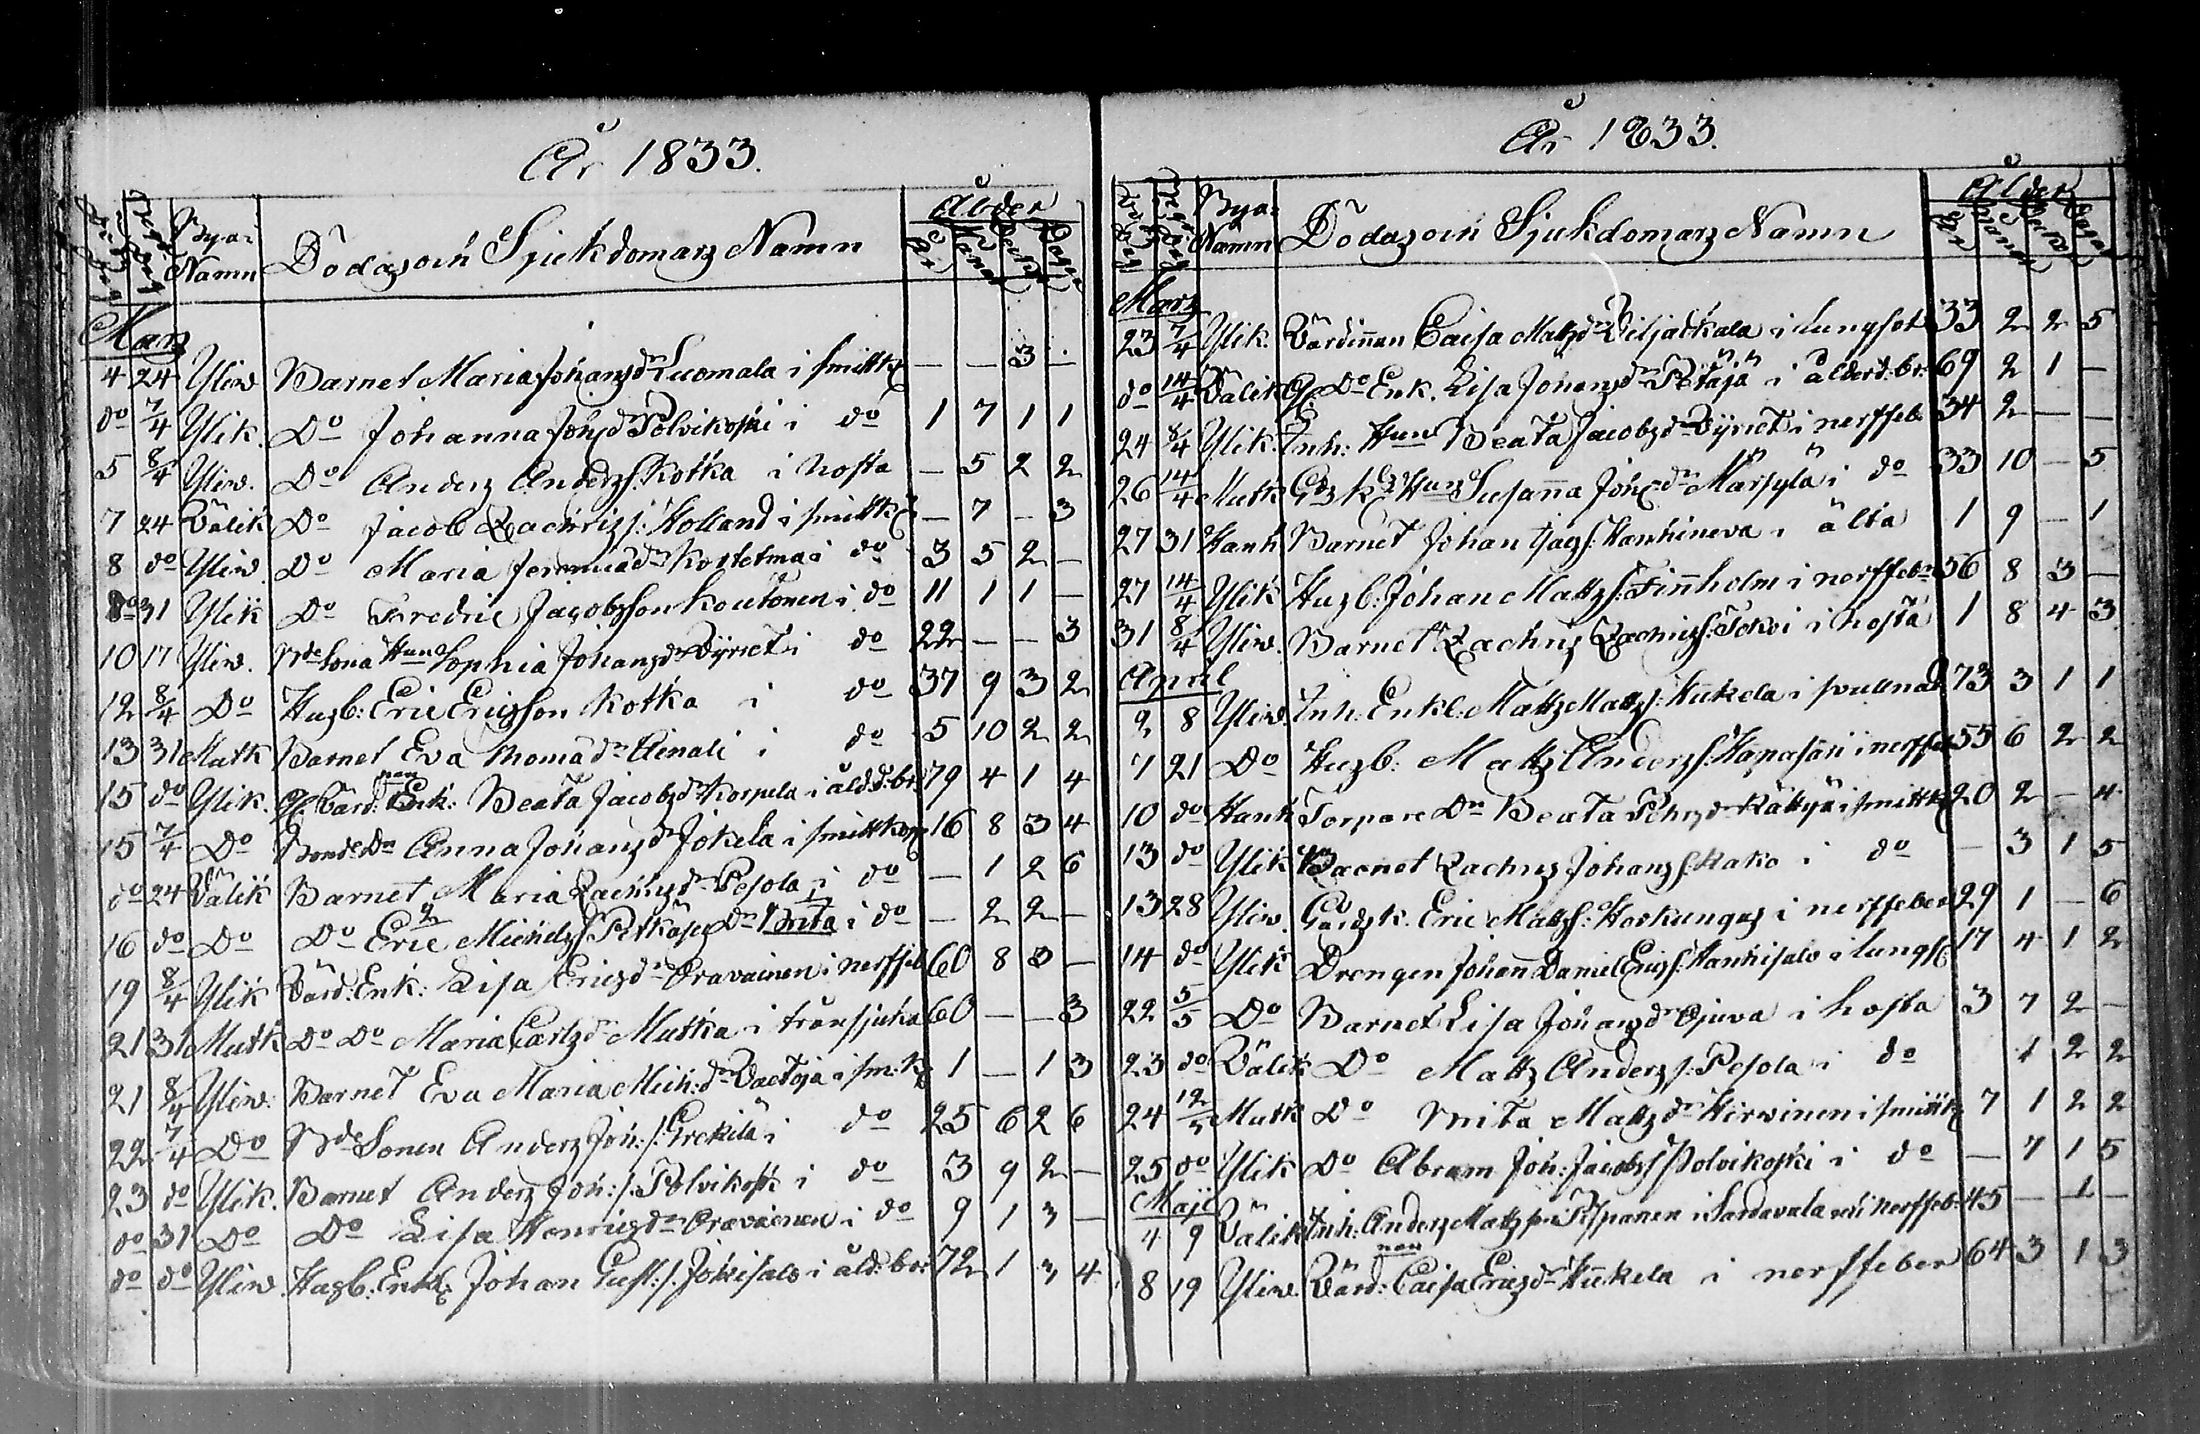 År 1833.
Bya: Namn Dödas och Sjukdomars Namn Ålder År Månad Veckor Dagar
Mars
4 24 Yliw Barnet Maria Johansdr Luomala i smittk — — 3 —
do 7/4 Ylik. Do Johanna Johsdr Polvikoski i do 1 7 1 1
5 8/4 Yliw. Do Anders Anderss. Kotka i hosta — 5 2 2
7 24 Wälik Do Jacob Zachriss: Holland i smittk — 7 — 3
8 do Yliw. Do Maria Jeremiädr i do 3 5 2 —
do 31 Ylik Do Fredric Jacobsson Koutonen i do 11 1 1 —
10 17 Yliw. Bde Sona Hun Sophia Johansdr Dyrict i do 22 — — 3
12 8/4 Do Husb: Eric Ericsson Kotka i do 37 9 3 2
13 31 Matk Barnet Eva Thomädr Ainali i do 5 10 2 2
15 do Ylik. Gl. Värd:nan Enk: Beata Jacobsdr Korpela i åld.d:br: 79 4 1 4
15 7/4 Do Bonde Dr Anna Johansdr Jokela i smittkop 16 8 3 4
do 24 Wälik Barnet Maria Zachrisdr Pesola i do — 1 2 6
16 do Do Do 2 Eric Michelss Pitkäjes Dr 1 Brita i do — 2 2 —
19 8/4 Ylik Värd: Enk: Lisa Ericsdr Oravainen i nerffeb 60 8 3 —
21 31 Mutk Do Do Maria Carlsdr Mutka i transjuka 60 — — 3
21 8/4 Yliw: Barnet Eva Maria Mich:dr i sm:k 1 — 1 3
22 7/4 Do Bde Sonen Anders Joh:s: Erkilä i do 25 6 2 6
23 do Ylik. Barnet Anders Joh:s. Polvikosk i do 3 9 2 —
do 31 Do Do Lisa Henricsdr Oravainen i do 9 1 3 —
do do Yliw. Husb. Enkl. Johan Gust:s. Jokisalo i åld:br: 72 1 3 4
År 1833.
Bya: Namn Dödas och Sjukdomars Namn Ålder År Månad Veckor Dagar
Mars
23 7/4 Ylik. Värdinnan Caisa Mattsdr Viljackala i Lungsot 33 2 2 5
do 14/4 Wälik Gl. Do Enk. Lisa Johansdr Pitäjä i ålderd.br: 69 2 1 —
24 8/4 Ylik. Inh: Hun Beata Jacobsdr Dyrict i nerffeb. 34 2 — —
26 14/4 Mutk Gdsk Hun Susanna Johsdr Märsylä i do 33 10 — 5
27 31 Hanh Barnet Johan Isacs. Hanhineva i älta 1 9 — 1
27 14/4 Ylik Husb: Johan Mattss: Finnholm i nerffebr 56 8 3 —
31 8/4 Yliw. Barnet Zachris Zachriss: Tokoi i hosta 1 8 4 3
April
2 8 Yliw. Inh: Enkl: Matts Mattss: Hukela i svullnad 73 3 1 1
7 21 Do Husb: Matts Anderss: Hapasari i nerffeb 55 6 2 2
10 do Hanh Torpare Dr Beata Johsdr Rättyä i smittk 20 2 — 4
13 do Ylik Barnet Zachris Johanss. Kako i do — 3 1 5
13 28 Yliw. Gårdsk. Eric Mattss: Koskungas i nerffeber 29 1 — 6
14 do Ylik Drengen Johan Daniel Erics: Hankisalo i lungs 17 4 1 2
22 5/5 Do Barnet Lisa Johansdr Ojuva i hosta 3 7 2 —
23 do Wälik Do Matts Anderss: Pesola i do 1 2 2
24 12/5 Mutk Do Brita Mattsdr Hirvinen i smittk 7 1 2 2
25 do Ylik Do Abram Joh: Jacobss Polvikoski i do — 7 1 5
Maji
4 9 Wälik Inh: Anders Mattss: Pispanen i Sardavala i nerffeb 45 — 1 —
8 19 Yliw. Värd:nan Caisa Ericsdr Hukela i nerffeber 64 3 1 3